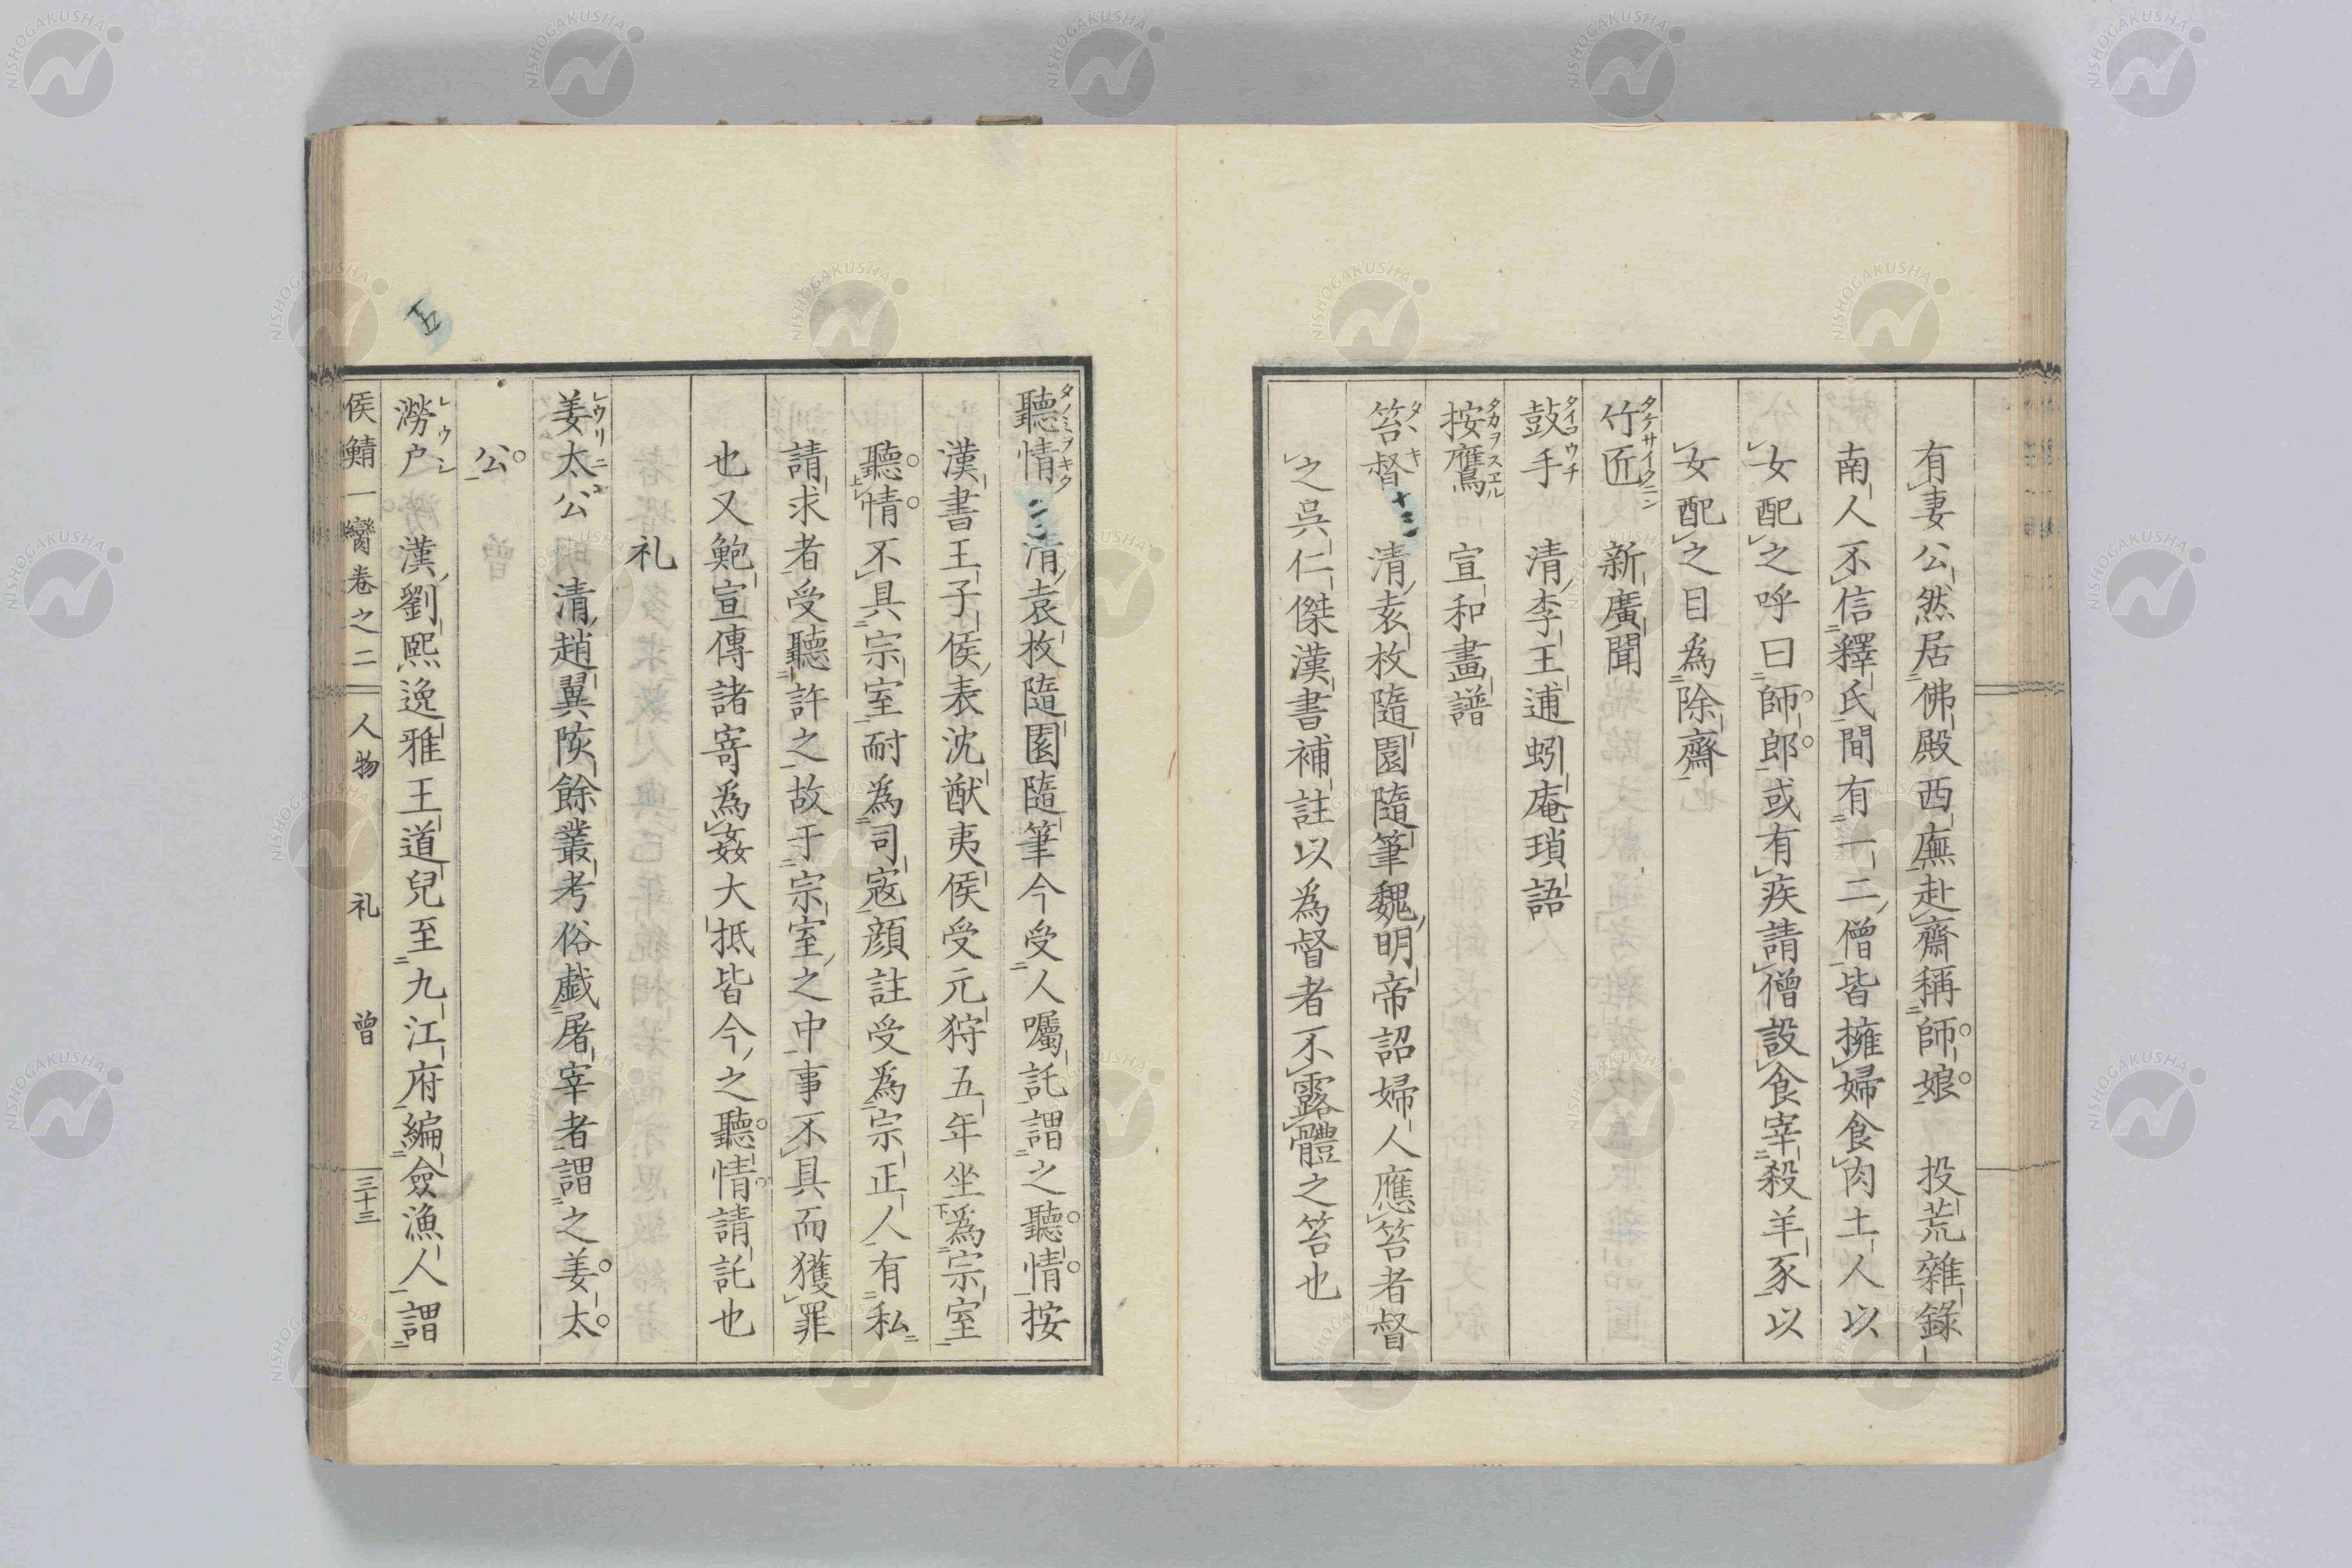 有妻公然居佛殿西廡赴齋稱師娘　投荒雜錄
南人不信釋氏間有一二僧皆擁婦食肉土人以
女配之呼曰師郎或有疾請僧設食宰殺羊豕以
女配之目為除齋
竹匠　新廣聞
タケサイクニン
鼓手　清李王逋蚓庵瑣語
タイコウチ
按鷹　宣和畫譜
タカヲスヱル
笞督　清袁枚隨園隨筆魏明帝詔婦人應笞者督
タヽキ
之吳仁傑漢書補註以為督者不露體之笞也
聽情　清袁枚隨園隨筆今受人囑託謂之聽情按
タノミヲキク
漢書王子侯表沈猷夷侯受元狩五年坐為宗室
聽情不具宗室耐為司寇顔註受為宗正人有私
請求者受聽許之故于宗室之中事不具而獲罪
也又鮑宣傳諸寄為姦大抵皆今之聽情請託也
礼
姜太公　清趙翼陔餘叢考俗戯屠宰者謂之姜太
レウリニ
公
澇户　漢劉熙逸雅王道兒至九江府編僉漁人謂
レウシ
侯鯖一臠卷之二　人物　礼　曾　三十三